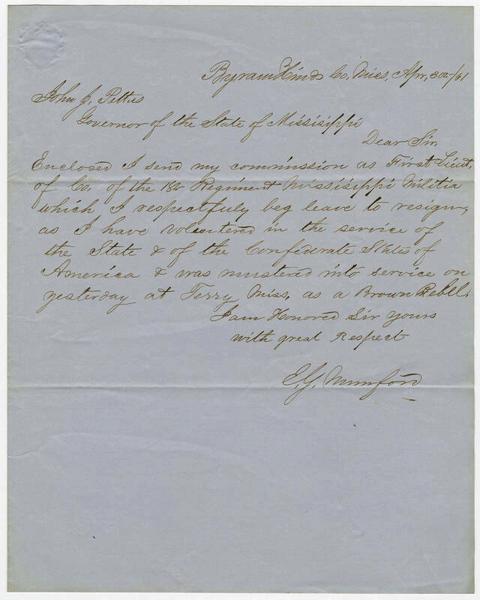 Byram Hinds Co, Miss, Apr, 30th/61
John J. Pettus
Governor of the State of Mississippi
Dear Sir
Enclosed I send my commission as First Lieut,
of Co. of the Regiment Mississippi Militia
which I respectfuly beg leave to resign,
as I have volentered in the service of
the State & of the Confederate States of
America & was mustered into service on
yesterday at Terry Miss, as a Brown Rebell.
I am Honored Sir yours
with great Respect
E. G. Mumford